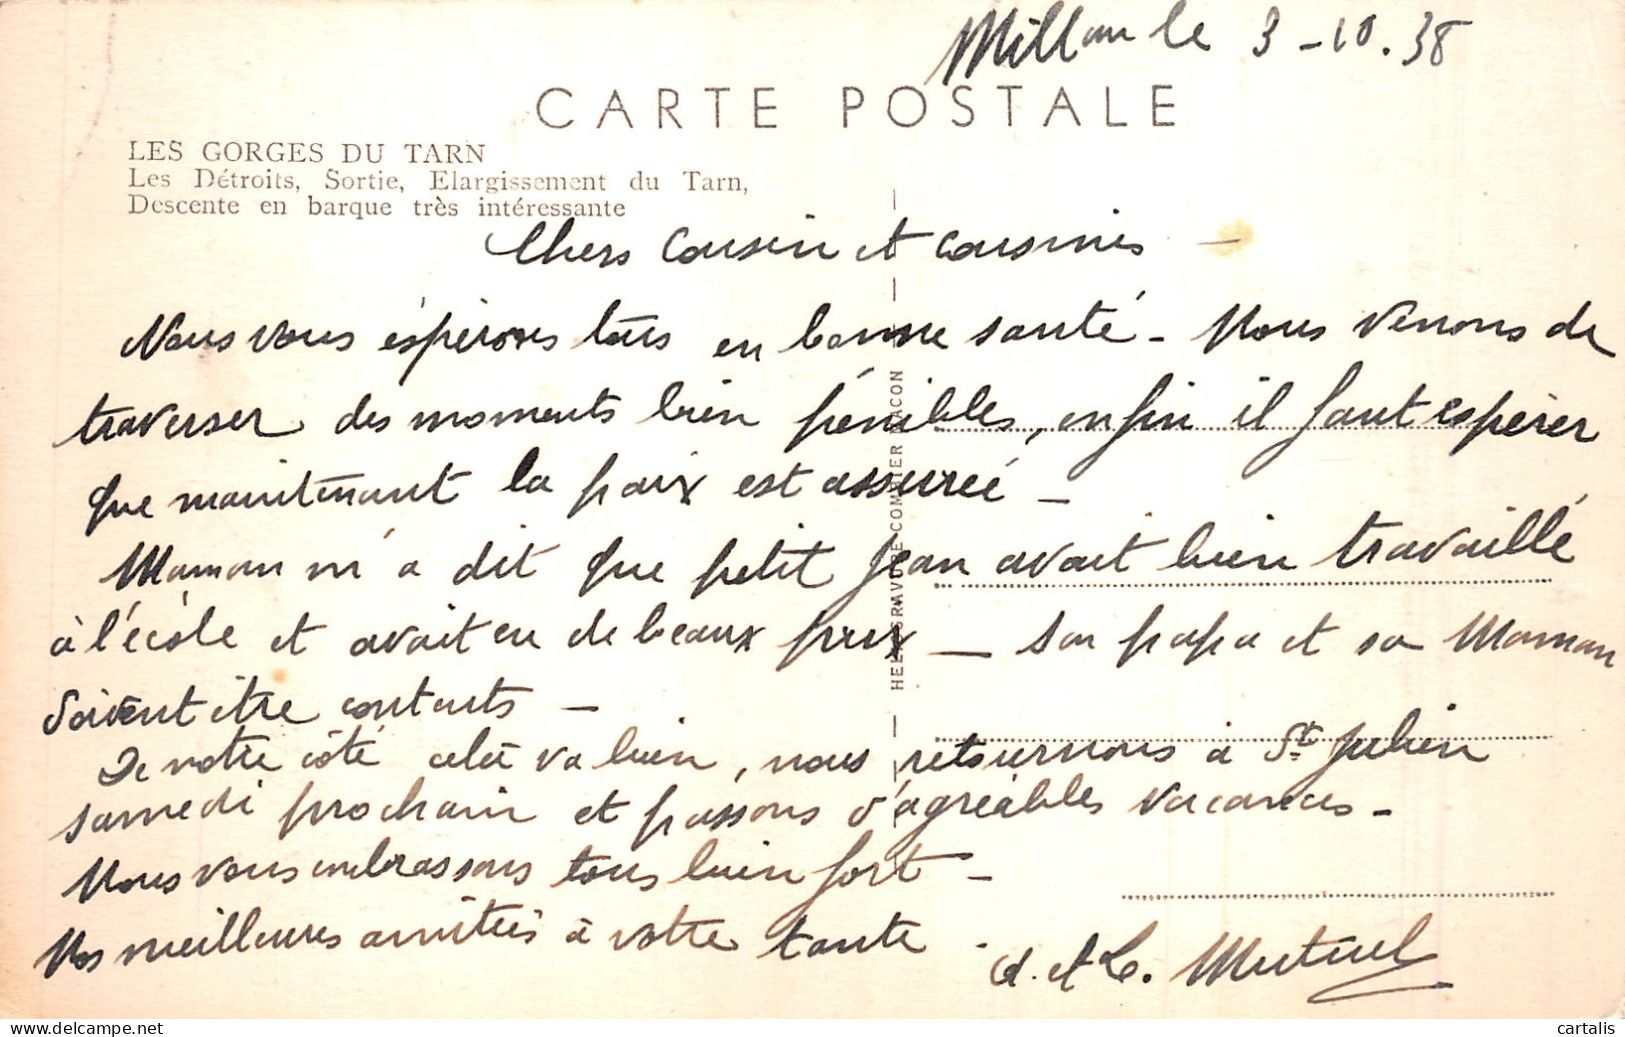 Millau le 3-10.38
CARTE POSTALE
LES GORGES DU TARN
Les Détroits, Sortie, Elargissement du Tarn,
Descente en barque très intéressante
Chers Cousin et cousines -
Nous vous éspérons tous en bonne santé - Nous venons de
traverser des moments bien pénibles, enfin il faut espérer
que maintenant la paix est assurée -
Maman m'a dit que petit Jean avait bien travaillé
à l'école et avait eu de beaux prix - son papa et sa Maman
doivent être contents -
De notre côté celà va bien, nous retournons à St Julien
samedi prochain et passons d'agréables vacances -
Nous vous embrassons tous bien fort -
Nos meilleures amitiés à votre tante -
et L.
HELIOGRAVURE COMBIER MACON
cartalis